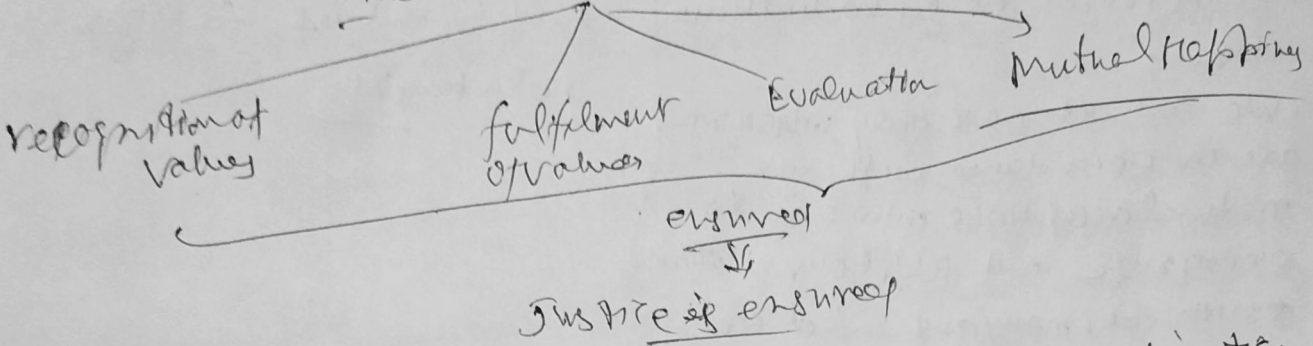 recognition of
values
fulfilment
of values
Evaluation
Mutual Happiness
ensured
Justice is ensured